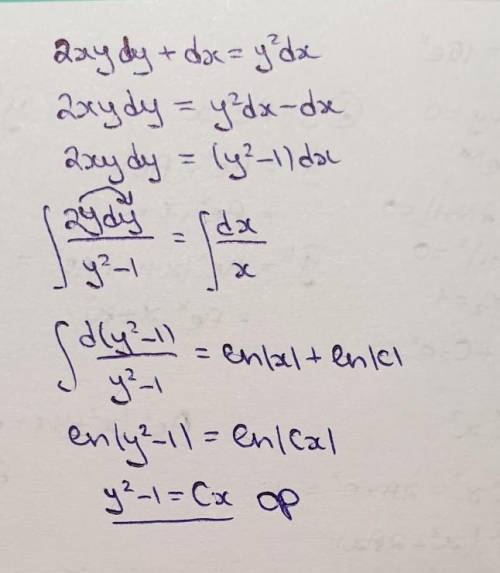 2xydy + dx = y²dx
2xydy = y²dx - dx
2xydy = (y²-1)dx
∫ 2ydy / y²-1 = ∫ dx / x
∫ d(y²-1) / y²-1 = ln|x| + ln|c|
ln|y²-1| = ln|Cx|
y²-1 = Cx ор